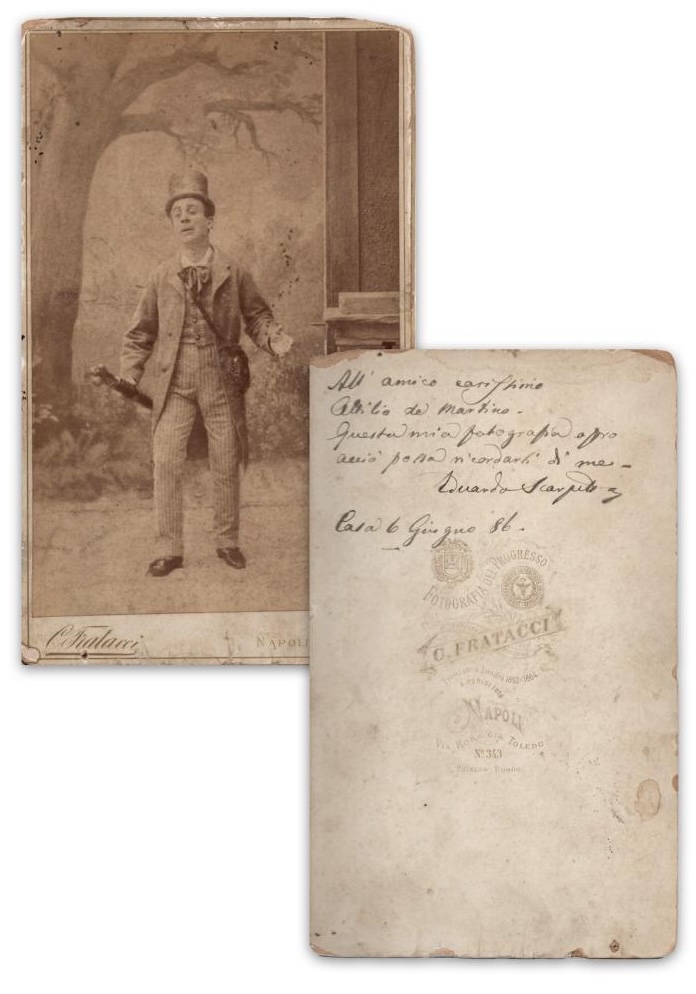 C. Fratacci
NAPOLI
All' amico carissimo
Attilio de Martino.
Questa mia fotografia offro
acciò possa ricordarsi di me -
Eduardo Scarpetta
Casa 6 Giugno 86.
FOTOGRAFIA DEL PROGRESSO
C. FRATACCI
Londra 1862-1864
NAPOLI
VIA ROMA GIÀ TOLEDO
No. 343